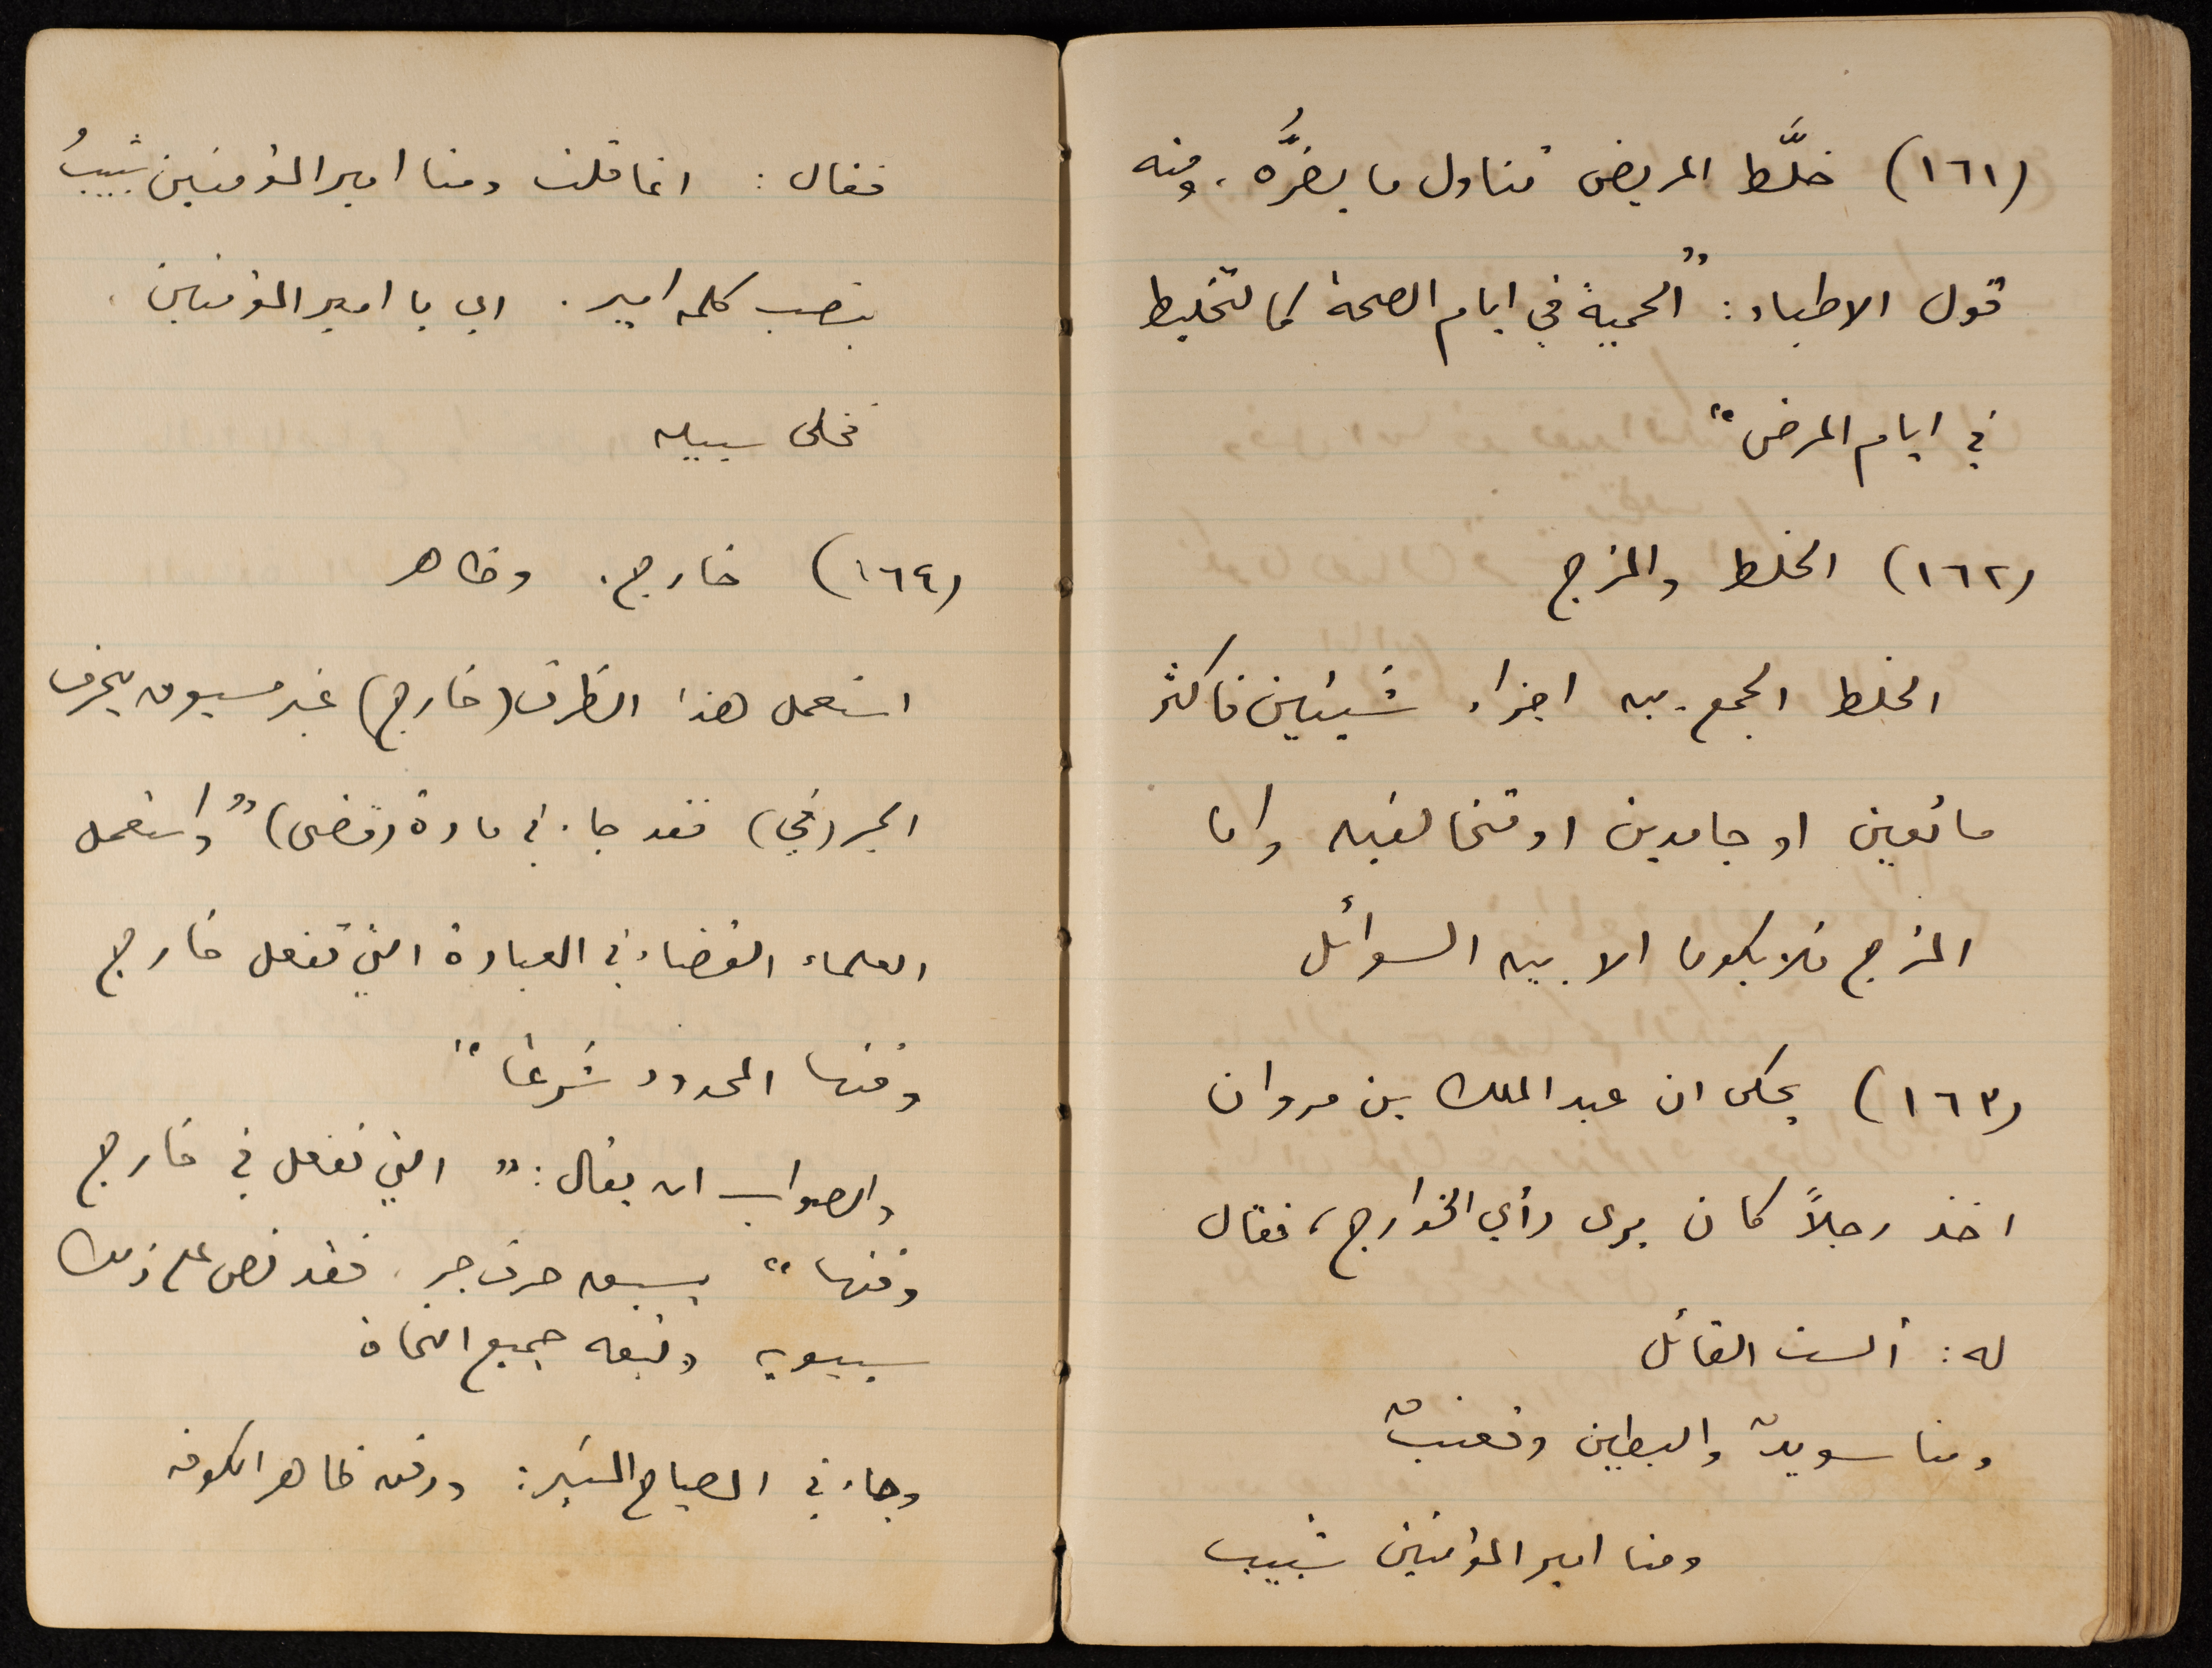 (١٦١) خلَّط المريض تناول ما يضرُّه، ومنه
قول الاطباء: "الحمية في ايام الصحة كالتخليط
في ايام المرض"
(١٦٢) الخلط والمزج
الخلط الجمع بين اجزاء شيئين فاكثر
مائعين او جامدين او متخالفين واما
المزج فلا يكون الا بين السوائل
(١٦٣) يحكى ان عبد الملك بن مروان
اخذ رجلاً كان يرى رأي الخوارج، فقال
له: ألست القائل
ومنا سويدٌ والبطين وقعنبٌ
ومنا امير المؤمنين شبيب
فقال: انما قلت ومنا امير المؤمنين شبيبُ
بنصب كلمة امير. اي يا امير المؤمنين.
فخلى سبيله
(١٦٤) خارج. وظاهر
استعمل هذا الظرف (خارج) غير مسبوق بحرف
الجر (في) فقد جاء في مادة (قضى) "واستعمل
العلماء القضاء في العبادة التي تفعل خارج
وقتها المحدود شرعًا"
والصواب ان يقال: "التي تفعل في خارج
وقتها" بسبق حرف جر. فقد نص على ذلك
سيبويه وتبعه جميع النحاة
وجاء في المصباح المنير: ودفن ظاهر الكوفة